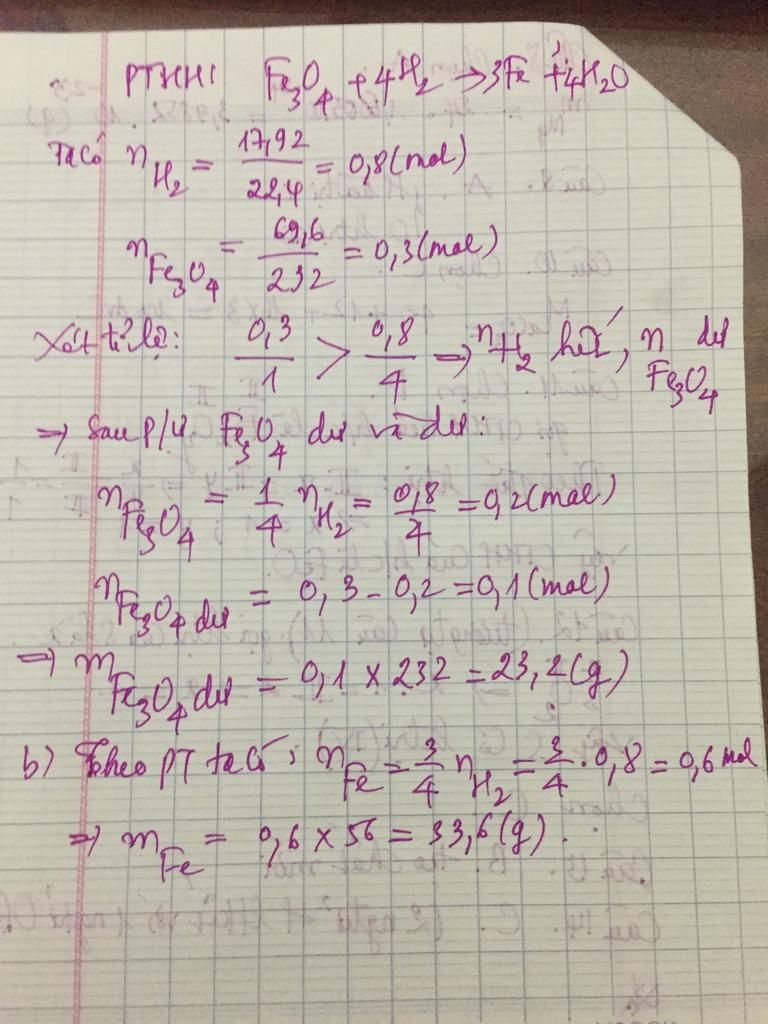 PTHH: Fe₃O₄ + 4H₂ → 3Fe + 4H₂O
Ta có n H₂ = 17,92 / 22,4 = 0,8 (mol)
n Fe₃O₄ = 69,6 / 232 = 0,3 (mol)
Xét tỉ lệ: 0,3 / 1 > 0,8 / 4 ⇒ n H₂ hết, n Fe₃O₄ dư
⇒ Sau p/ứ Fe₃O₄ dư và dư:
n Fe₃O₄ = 1/4 n H₂ = 0,8 / 4 = 0,2 (mol)
n Fe₃O₄ dư = 0,3 - 0,2 = 0,1 (mol)
⇒ m Fe₃O₄ dư = 0,1 × 232 = 23,2 (g)
b) Theo PT ta có: n Fe = 3/4 n H₂ = 3/4 . 0,8 = 0,6 mol
⇒ m Fe = 0,6 × 56 = 33,6 (g).